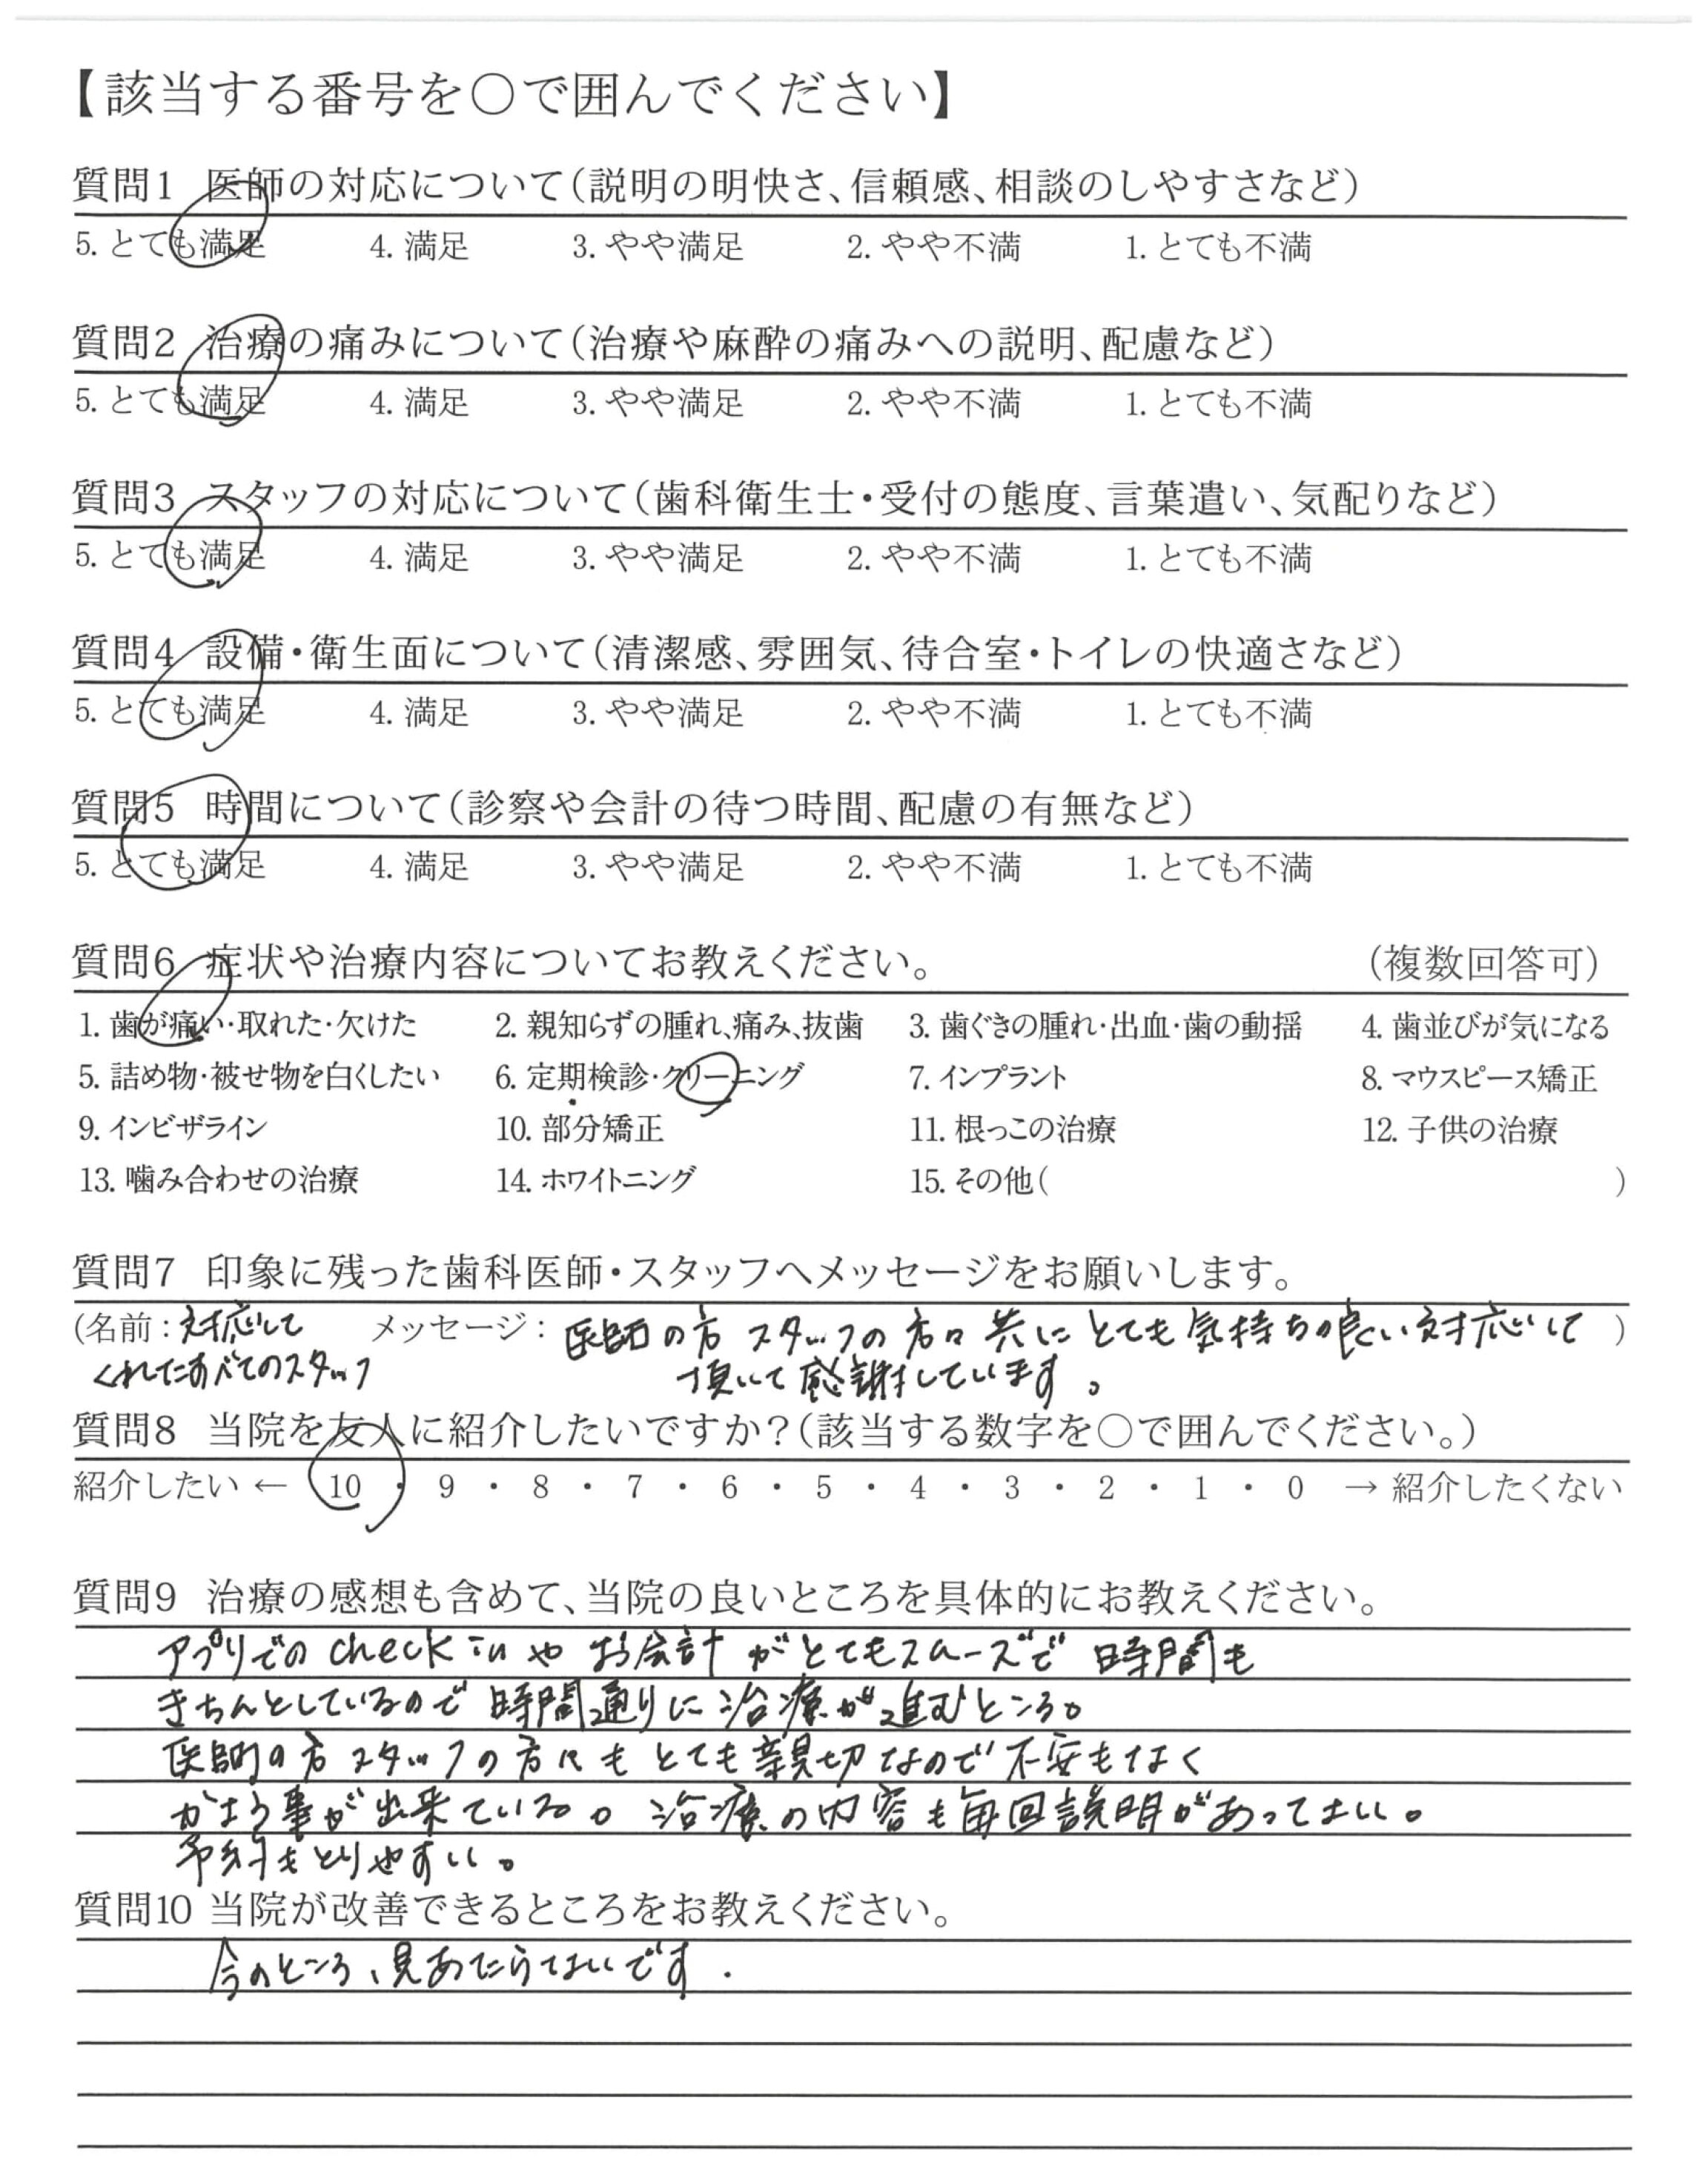 【該当する番号を○で囲んでください】
質問1 医師の対応について(説明の明快さ、信頼感、相談のしやすさなど)
5. とても満足 4. 満足 3. やや満足 2. やや不満 1. とても不満
質問2 治療の痛みについて(治療や麻酔の痛みへの説明、配慮など)
5. とても満足 4. 満足 3. やや満足 2. やや不満 1. とても不満
質問3 スタッフの対応について(歯科衛生士・受付の態度、言葉遣い、気配りなど)
5. とても満足 4. 満足 3. やや満足 2. やや不満 1. とても不満
質問4 設備・衛生面について(清潔感、雰囲気、待合室・トイレの快適さなど)
5. とても満足 4. 満足 3. やや満足 2. やや不満 1. とても不満
質問5 時間について(診察や会計の待つ時間、配慮の有無など)
5. とても満足 4. 満足 3. やや満足 2. やや不満 1. とても不満
質問6 症状や治療内容についてお教えください。 (複数回答可)
1. 歯が痛い・取れた・欠けた 2. 親知らずの腫れ、痛み、抜歯 3. 歯ぐきの腫れ・出血・歯の動揺 4. 歯並びが気になる
5. 詰め物・被せ物を白くしたい 6. 定期検診・クリーニング 7. インプラント 8. マウスピース矯正
9. インビザライン 10. 部分矯正 11. 根っこの治療 12. 子供の治療
13. 噛み合わせの治療 14. ホワイトニング 15. その他( )
質問7 印象に残った歯科医師・スタッフへメッセージをお願いします。
(名前: 対応して メッセージ: 医師の方 スタッフの方々 共に とても気持ちの良い対応して )
くれたすべてのスタッフ 頂いて感謝しています。
質問8 当院を友人に紹介したいですか?(該当する数字を○で囲んでください。)
紹介したい ← 10 ・ 9 ・ 8 ・ 7 ・ 6 ・ 5 ・ 4 ・ 3 ・ 2 ・ 1 ・ 0 → 紹介したくない
質問9 治療の感想も含めて、当院の良いところを具体的にお教えください。
アプリでの check in や お会計 がとてもスムーズで 時間も
きちんとしているので 時間通りに治療が進むところ。
医師の方 スタッフの方々も とても親切なので 不安もなく
かよう事が出来ている。治療の内容も毎回説明があってよい。
予約もとりやすい。
質問10 当院が改善できるところをお教えください。
今のところ、見あたらないです.